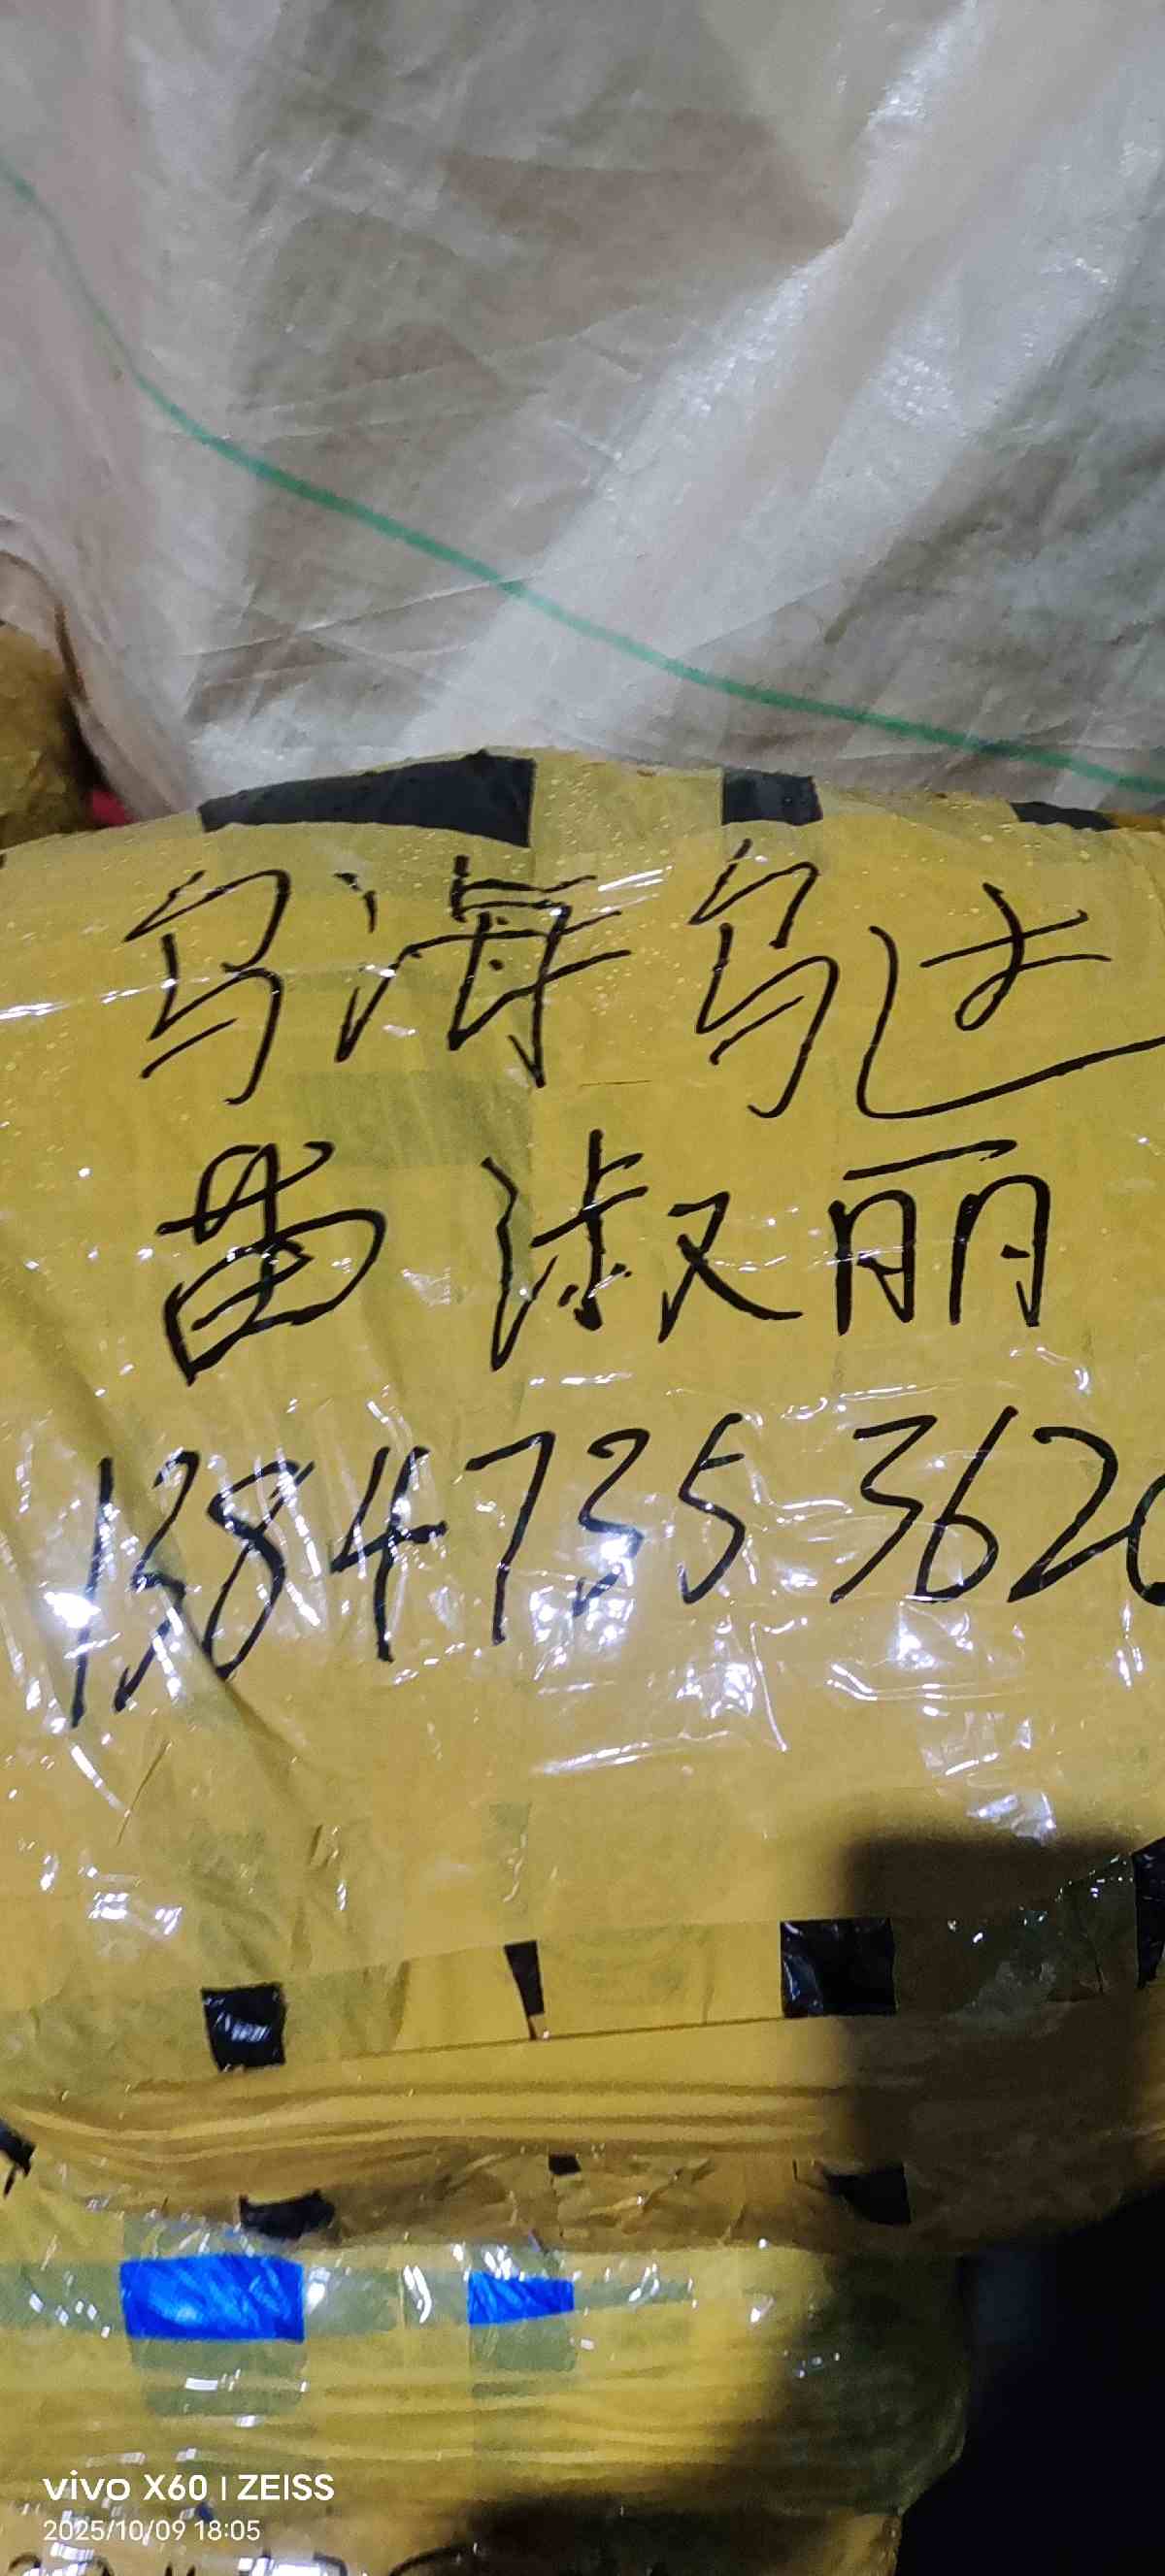 乌海乌达
苗淑丽
13847353620
vivo X60 | ZEISS
2025/10/09 18:05